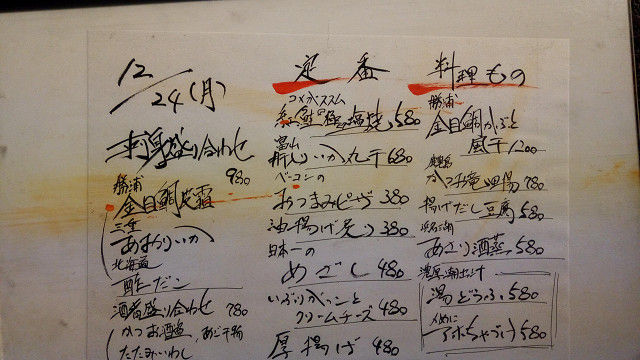 12/24(月)
刺身盛り合わせ
980
勝浦
金目鯛炙霜
三重
あおりいか
北海道
酢だこ
酒肴盛り合わせ 780
かつお酒盗、あご干物
たたみいわし
定番
コメがススム
紅鮭 塩焼 580
富山
いか丸干 680
ベーコンの
おつまみピザ 380
油揚げ炙り 380
日本一の
めざし 480
いぶりがっこと
クリームチーズ 480
厚揚げ 480
料理もの
勝浦
金目鯛かぶと
風干 1200
竜田揚 780
揚げだし豆腐 580
浜名湖
あさり酒蒸 580
湯どうふ 580
〆めに
ちゃづけ 580